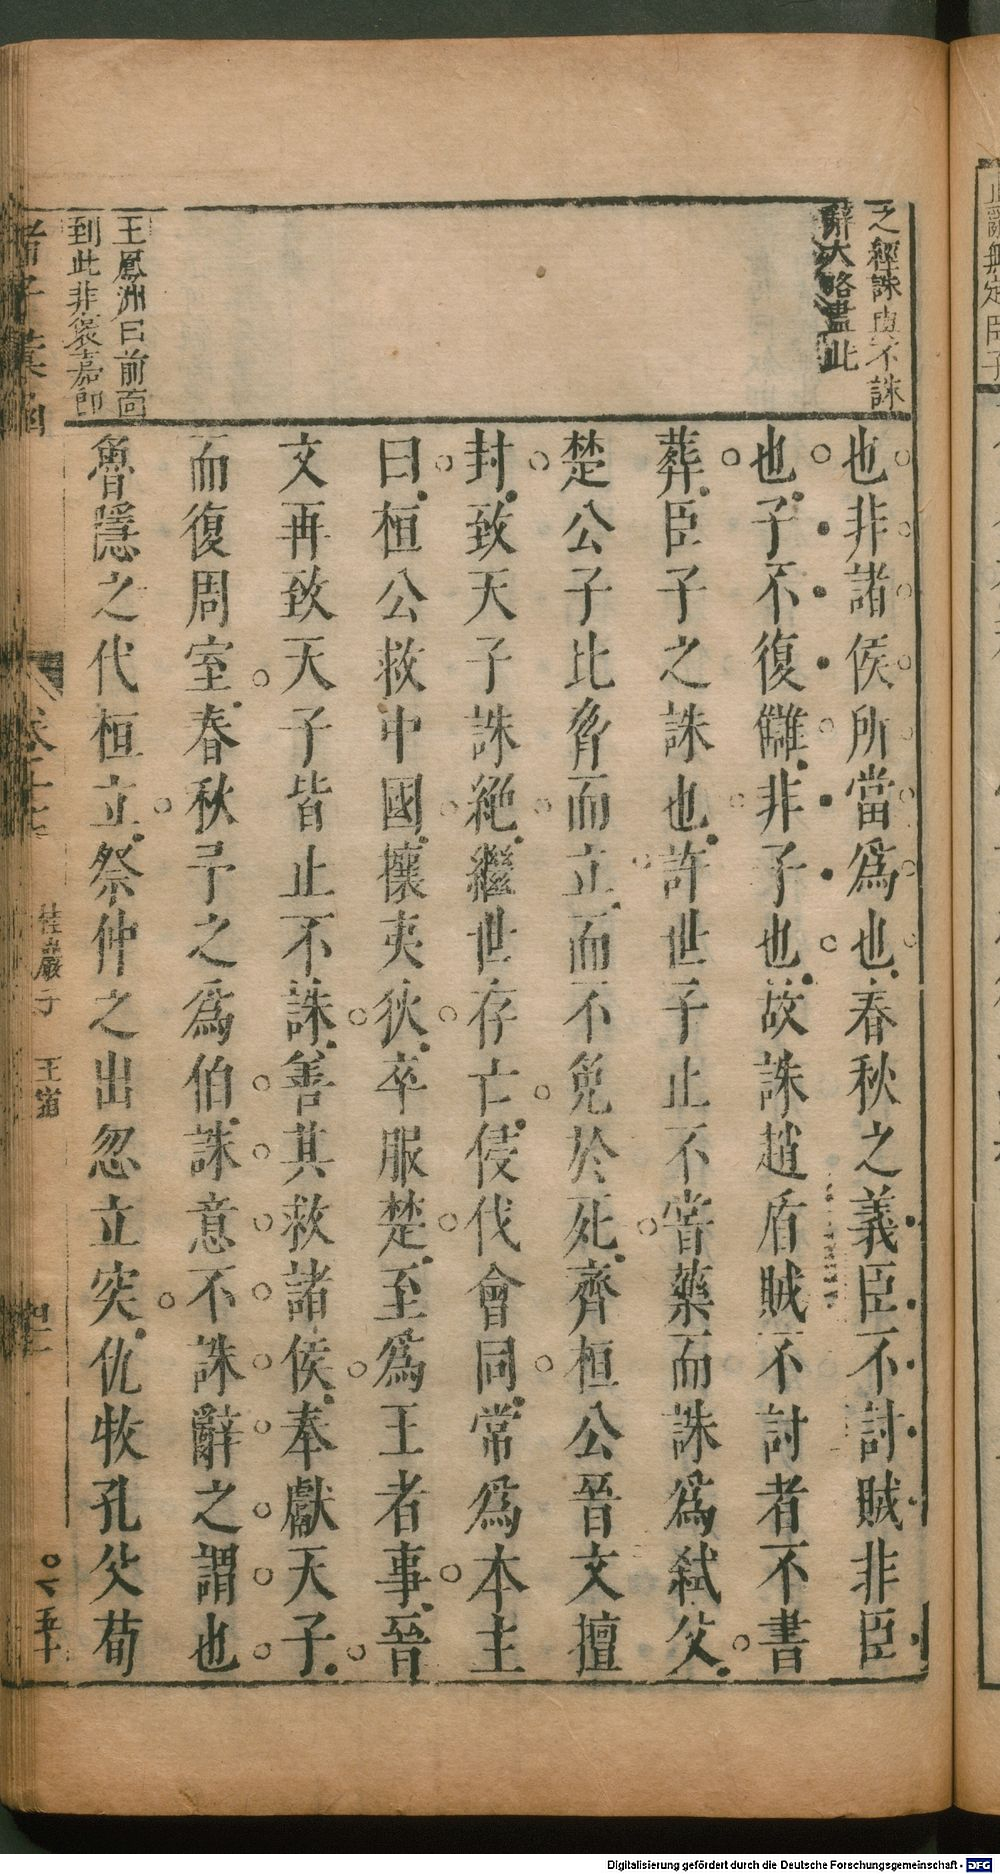 之經誅直不誅
辭大略盡此
也非諸侯所當爲也春秋之義臣不討賊非臣
也子不復讎非子也故誅趙盾賊不討者不書
葬臣子之誅也許世子止不嘗藥而誅爲弑父
楚公子比脅而立而不免於死齊桓公晉文擅
封致天子誅絶繼世存亡侵伐會同常爲本主
曰桓公救中國攘夷狄卒服楚至爲王者事晉
文再致天子皆止不誅善其救諸侯奉獻天子
而復周室春秋予之爲伯誅意不誅辭之謂也
王鳳洲曰前面
到此非褒嘉郎
魯隱之代桓立祭仲之出忽立突仇牧孔父荀
諸子彙函
桂巖子 王道
Digitalisierung gefördert durch die Deutsche Forschungsgemeinschaft - DFG